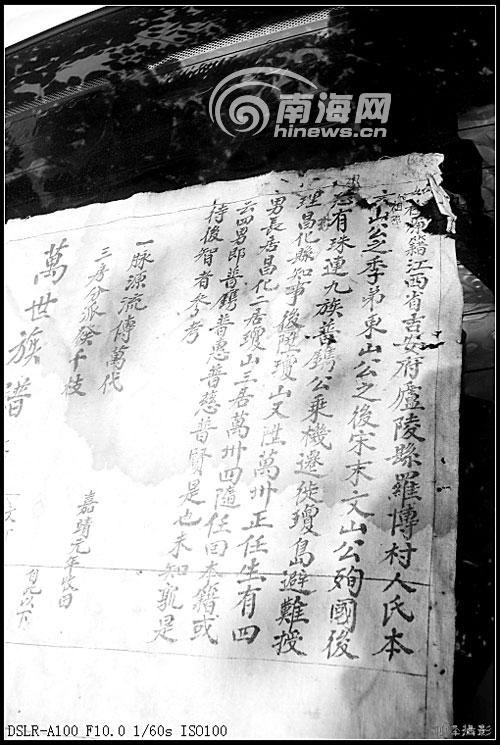 南海网
hinews.cn
源籍江西省吉安府廬陵縣羅博村人氏本
文山公之季弟東山公之後宋末文山公殉國後
恐有珠連九族普鐫公乘機遷徙瓊島避難授
理昌化縣知事後陞瓊山又陞萬卅正任生有四
男長居昌化二居瓊山三居萬卅四隨任回本籍或
云四男即普鐫普惠普慈普賢是也未知孰是
待後智者參考
一脉源流傳萬代
三房分派發千枝
萬世族譜
嘉靖元年
DSLR-A100 F10.0 1/60s ISO100
攝影